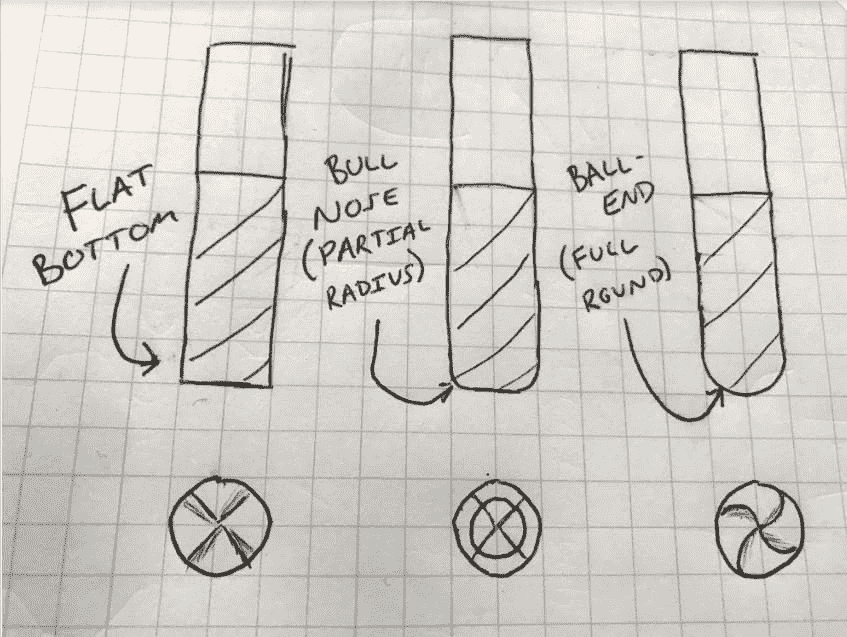 FLAT
BOTTOM
BULL
NOSE
(PARTIAL
RADIUS)
BALL-
END
(FULL
ROUND)